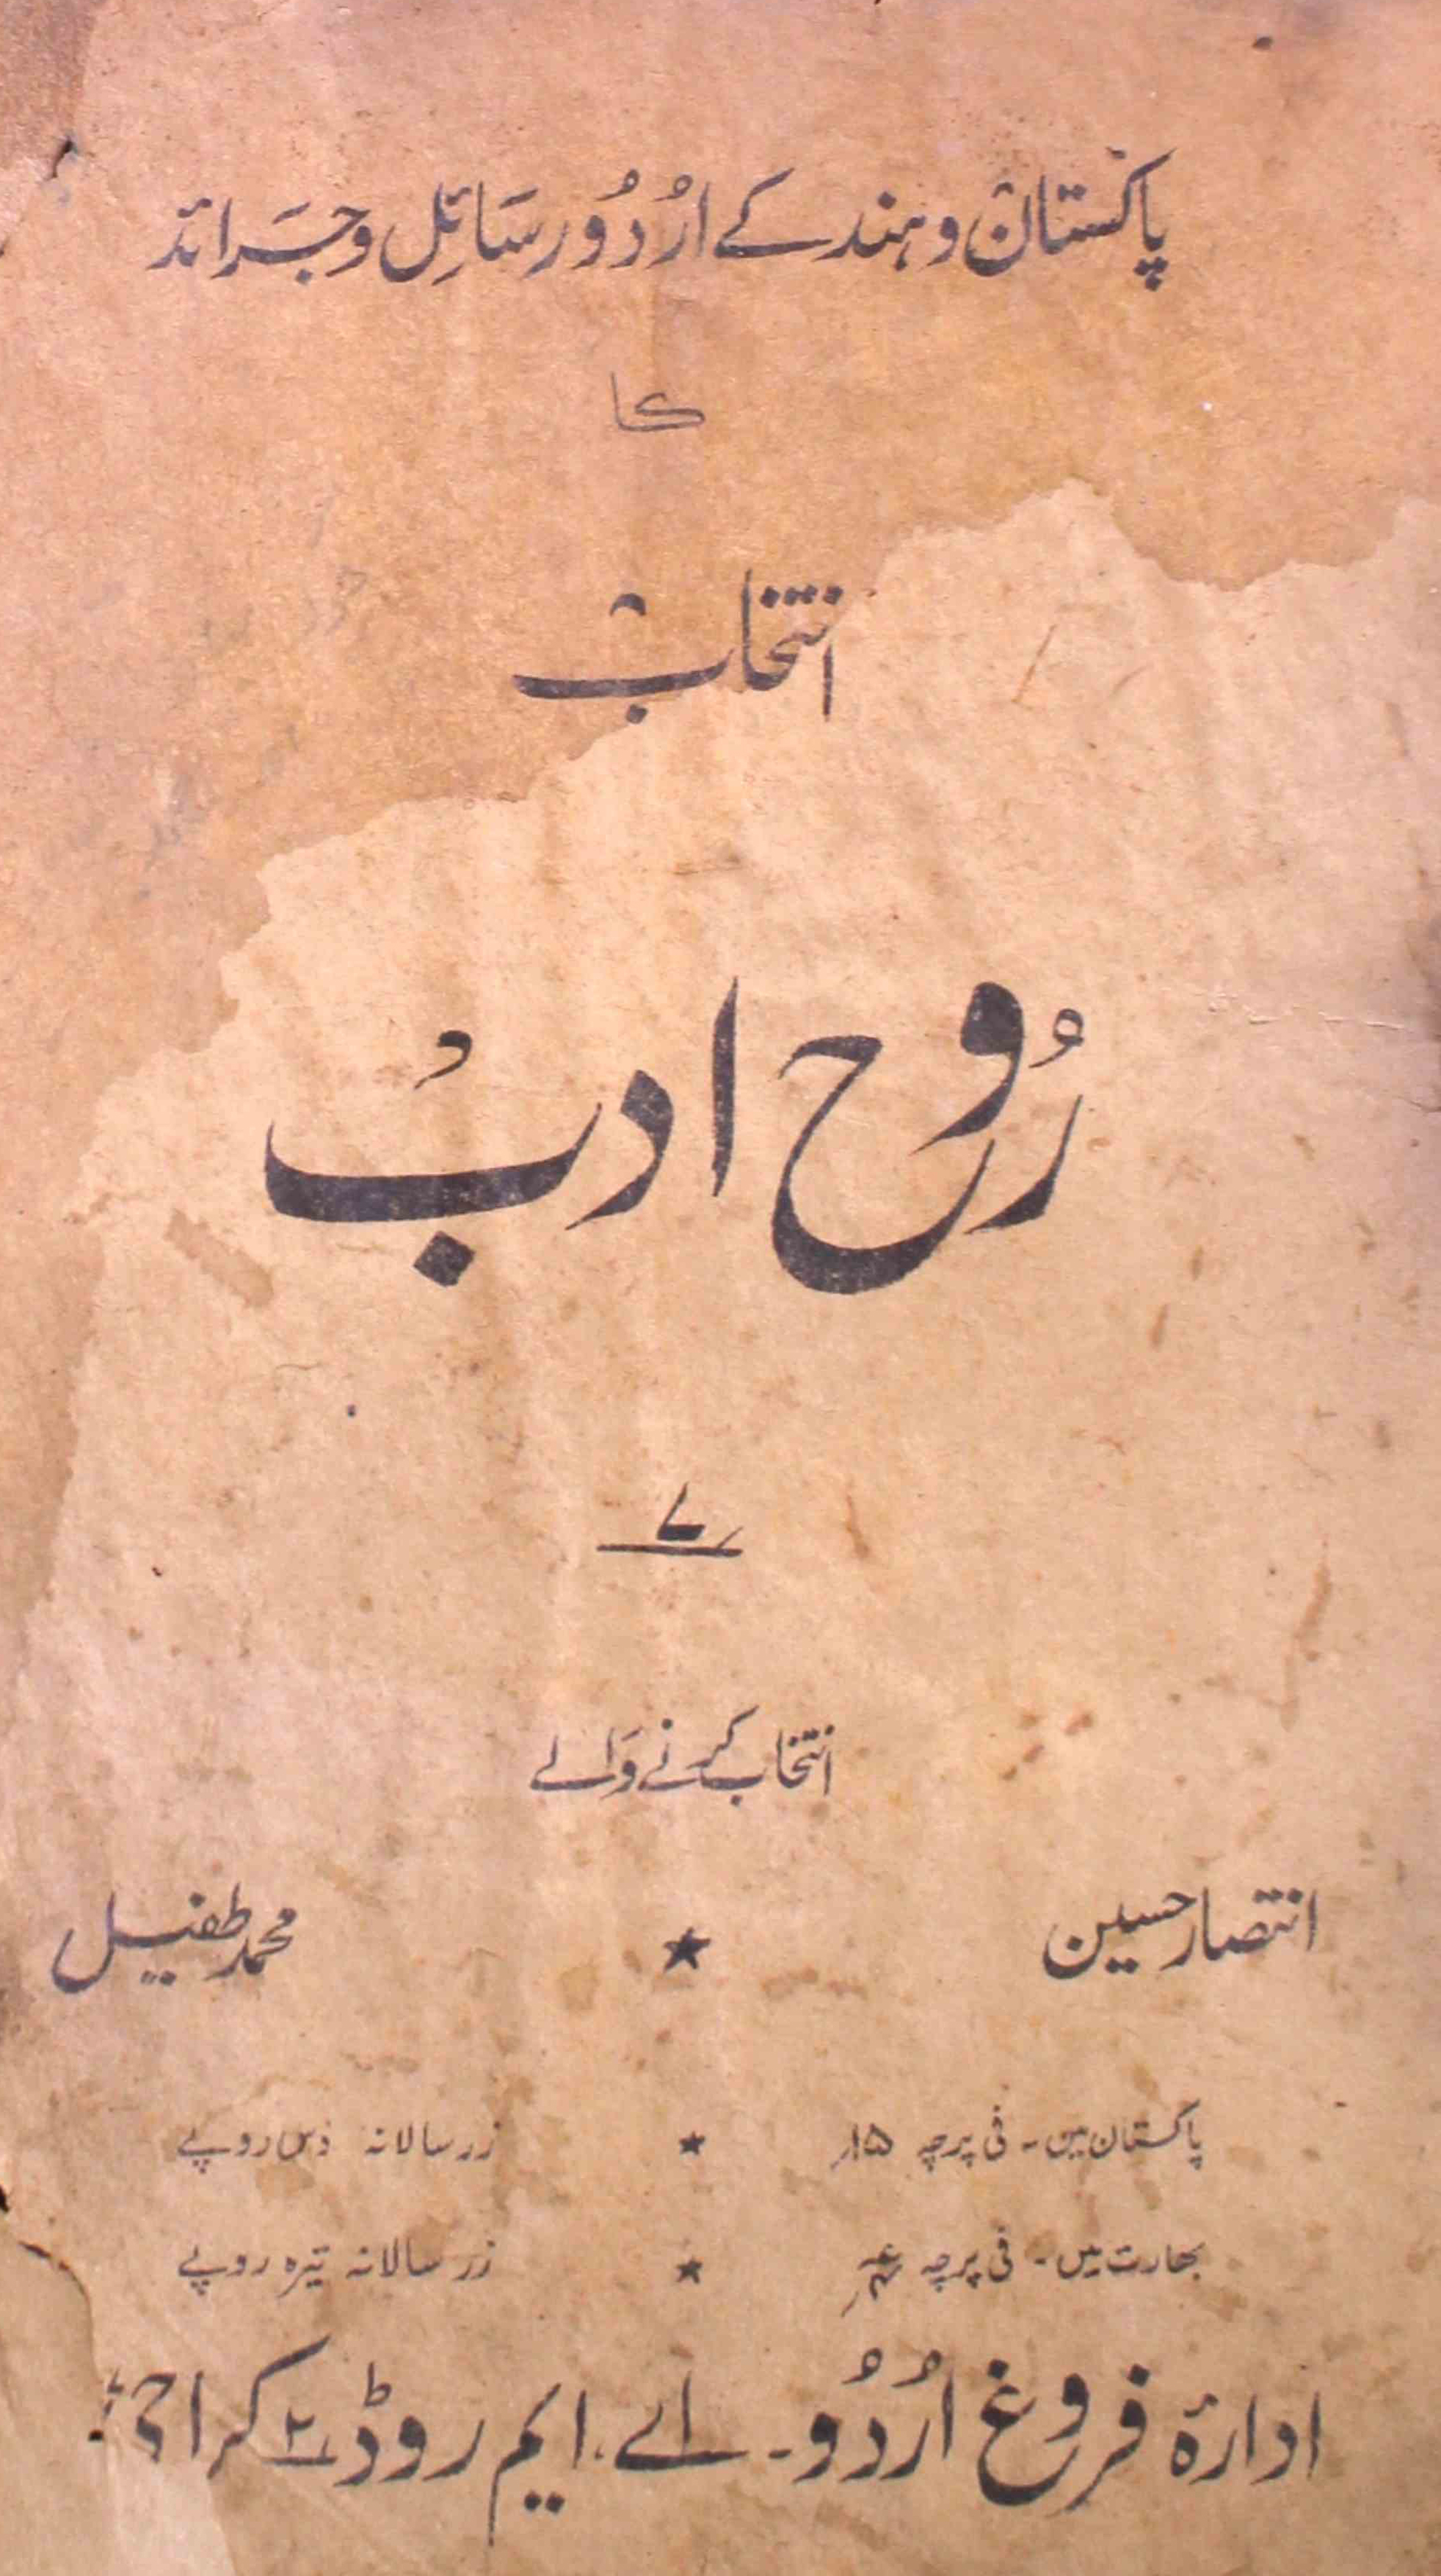 پاکستان و ہند کے اُردُو رسَائِل و جَرائد
کا
انتخاب
رُوح ادب
۷
انتخاب کرنے وَالے
انتصار حسین ★ محمد طفیل
پاکستان میں - فی پرچہ ۱۵؍ ★ زر سالانہ دس روپے
بھارت میں - فی پرچہ ★ زر سالانہ تیرہ روپے
ادارۂ فروغ اُردُو - اے، ایم روڈ ۲ کراچی